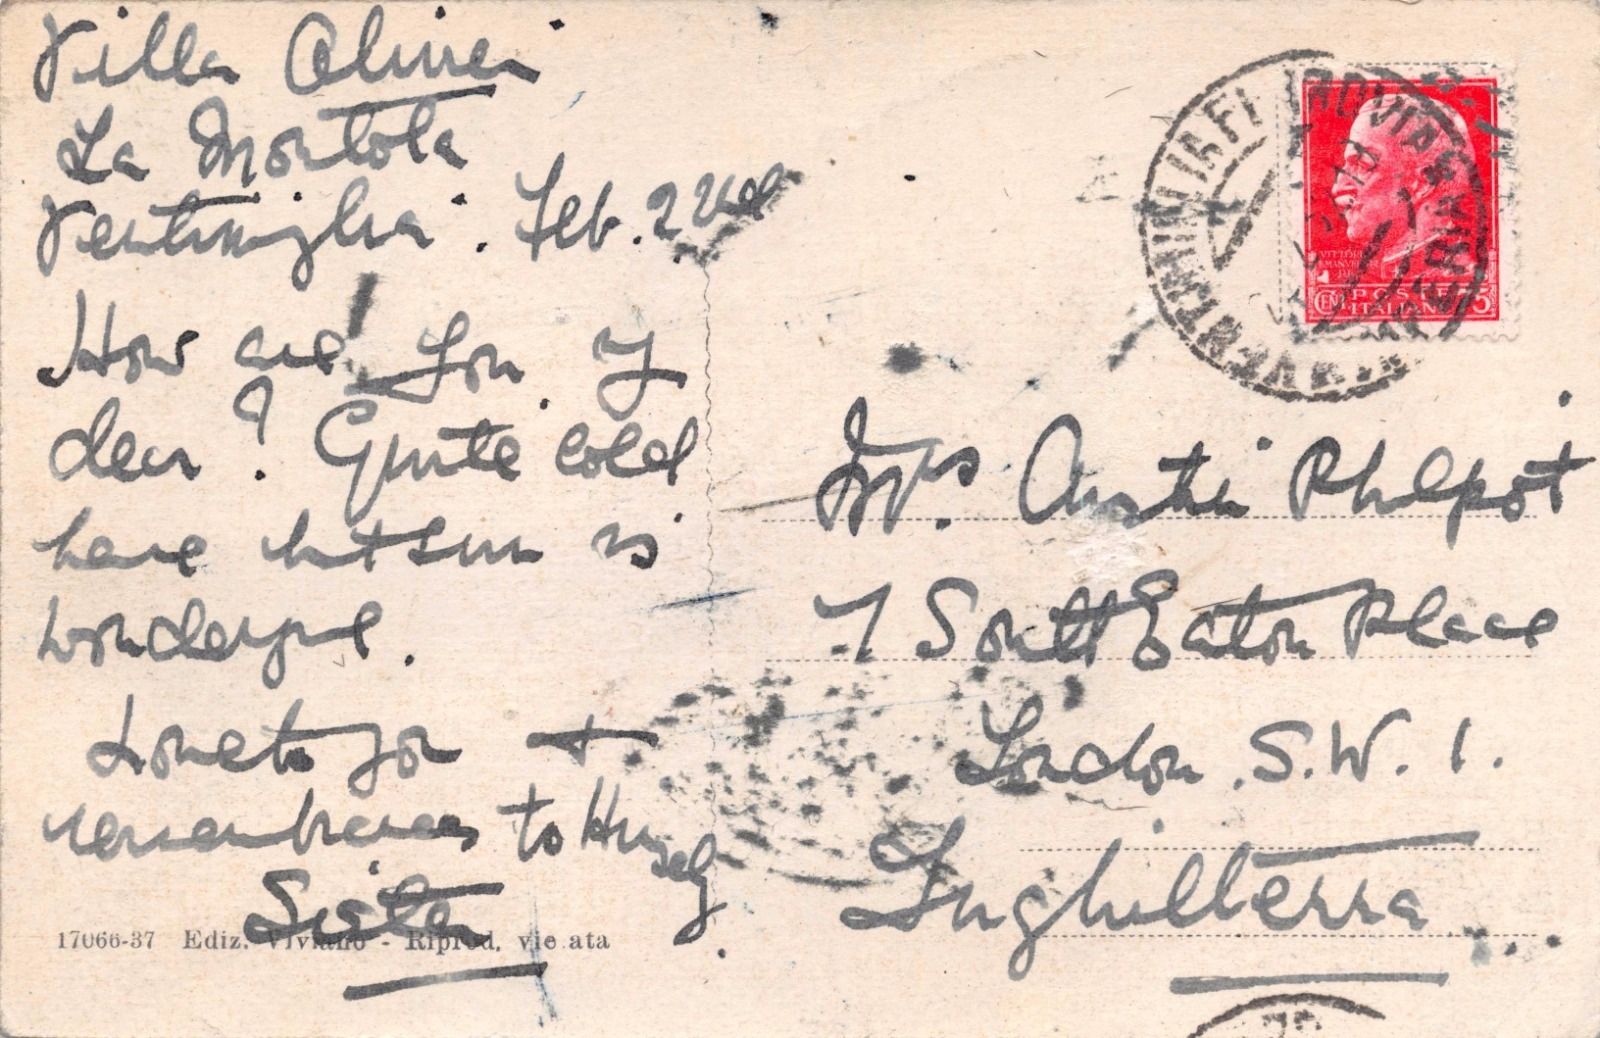 Villa
La Mortola
Ventimiglia. Feb. 22nd
How are you my
dear? Quite cold
here but sun is
wonderful.
Love to you +
remembrances to
17066-37 Ediz. Viviano - Riprod. vietata
VENTIMIGLIA
FERROVIA
CENT 75
POSTE
ITALIANE
Mrs. Austin Philpot
7 South Eaton Place
London. S.W. 1.
Inghilterra